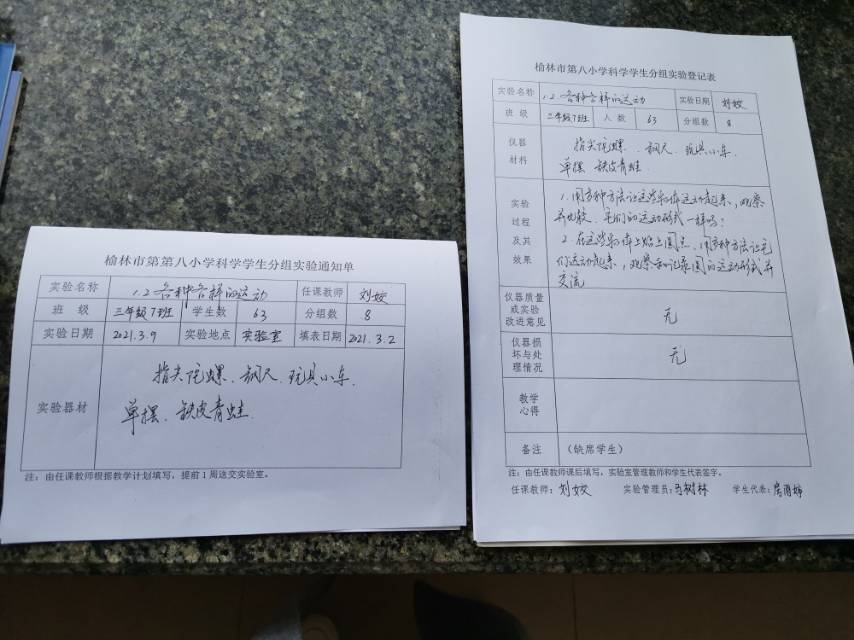 榆林市第第八小学科学学生分组实验通知单
实验名称 1.2 各种各样的运动 任课教师 刘姣
班 级 三年级7班 学生数 63 分组数 8
实验日期 2021.3.9 实验地点 实验室 填表日期 2021.3.2
实验器材
指尖陀螺、钢尺、玩具小车、
单摆、铁皮青蛙
注：由任课教师根据教学计划填写，提前1周送交实验室。
榆林市第八小学科学学生分组实验登记表
实验名称 1.2 各种各样的运动 实验日期 刘姣
班 级 三年级7班 人 数 63 分组数 8
仪器
材料
指尖陀螺、钢尺、玩具小车、
单摆、铁皮青蛙
实验
过程
及其
效果
1.用多种方法让这些物体运动起来，观察
并比较，它们的运动形式一样吗？
2.在这些物体上贴上圆点，用多种方法让它
们运动起来，观察和记录圆点的运动形式并
交流
仪器质量
或实验
改进意见
无
仪器损
坏与处
理情况
无
教学
心得
备注 （缺席学生）
注：由任课教师课后填写，实验室管理教师和学生代表签字。
任课教师：刘姣 实验管理员： 学生代表：